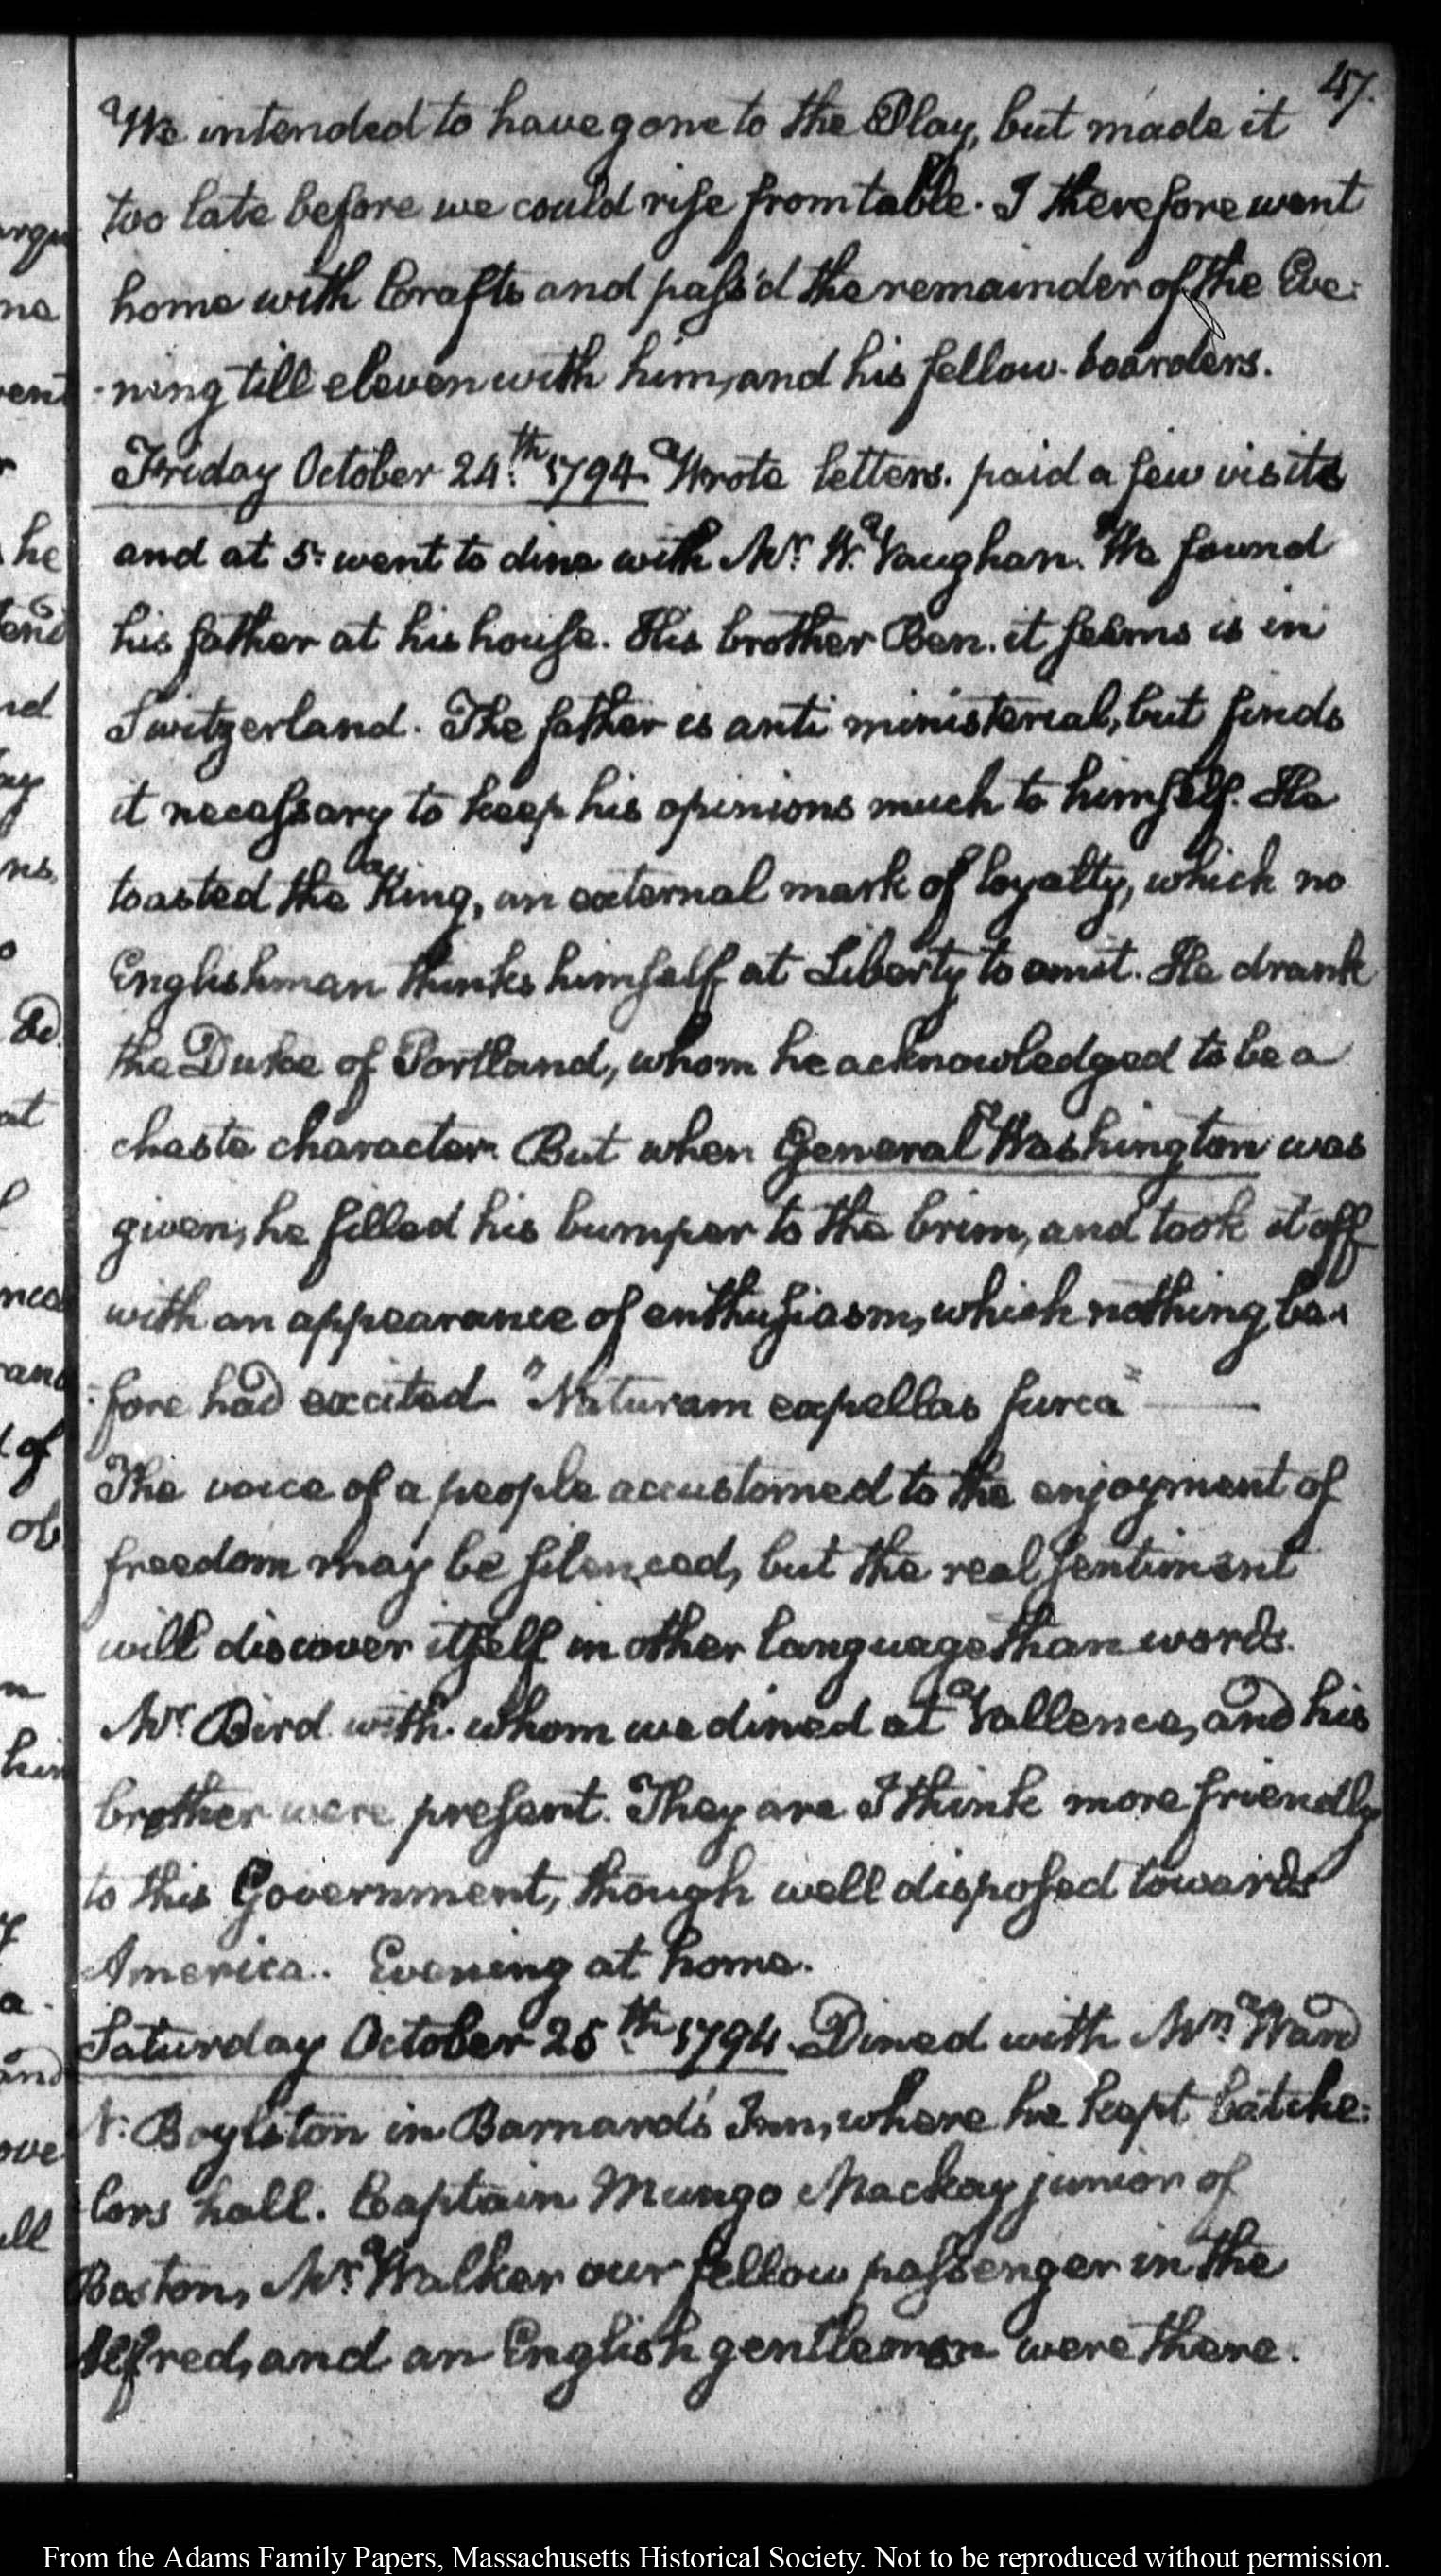 47.
We intended to have gone to the Play, but made it
too late before we could rise from table. I therefore went
home with Crafts and pass'd the remainder of the Eve:
-ning till eleven with him, and his fellow-boarders.
Friday October 24th. 1794. Wrote letters. paid a few visits
and at 5: went to dine with Mr. W. Vaughan. We found
his father at his house. His brother Ben. it seems is in
Switzerland. The father is anti ministerial, but finds
it necessary to keep his opinions much to himself. He
toasted the King, an external mark of loyalty, which no
Englishman thinks himself at Liberty to omit. He drank
the Duke of Portland, whom he acknowledged to be a
chaste character. But when General Washington was
given, he filled his bumper to the brim, and took it off
with an appearance of enthusiasm, which nothing be:
:fore had excited. "Naturam expellas furca" ———
The voice of a people accustomed to the enjoyment of
freedom may be silenced, but the real sentiment
will discover itself in other language than words.
Mr. Bird with whom we dined at Vallence, and his
brother were present. They are I think more friendly
to this Government, though well disposed towards
America. Evening at home.
Saturday October 25th. 1794. Dined with Mr. Ward
N. Boylston in Barnard's Inn, where he kept batche:
-lors hall. Captain Mungo Mackay junior of
Boston, Mr. Walker our fellow passenger in the
Alfred, and an English gentleman were there.
From the Adams Family Papers, Massachusetts Historical Society. Not to be reproduced without permission.